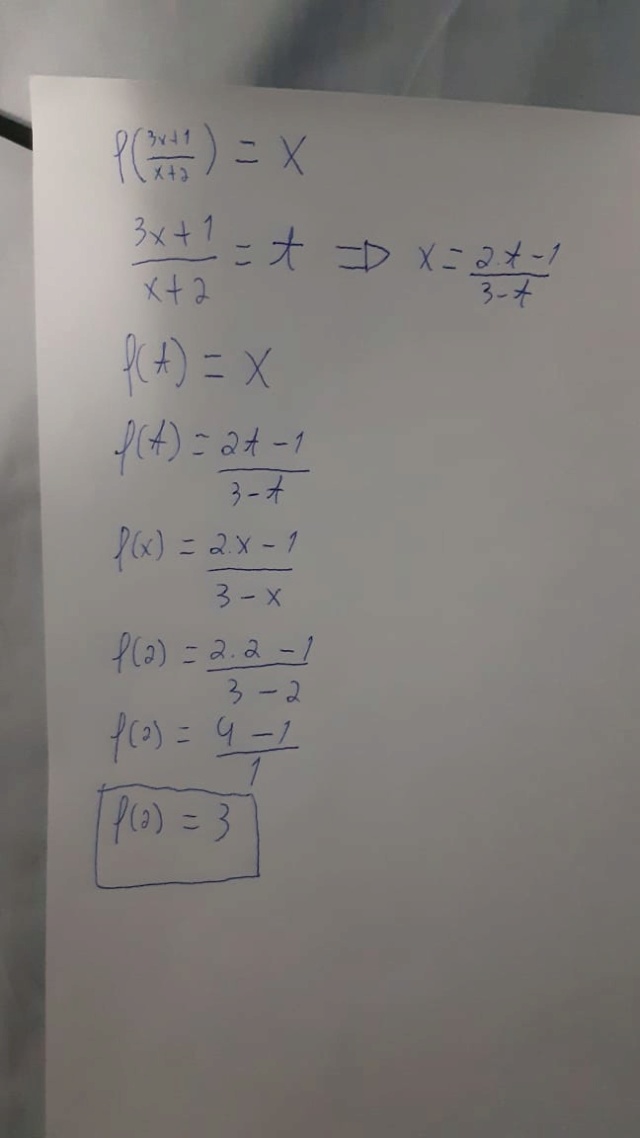 f((3x+1)/(x+2)) = x
(3x+1)/(x+2) = t ⇒ x = (2.t-1)/(3-t)
f(t) = x
f(t) = (2t-1)/(3-t)
f(x) = (2.x-1)/(3-x)
f(2) = (2.2-1)/(3-2)
f(2) = (4-1)/1
f(2) = 3